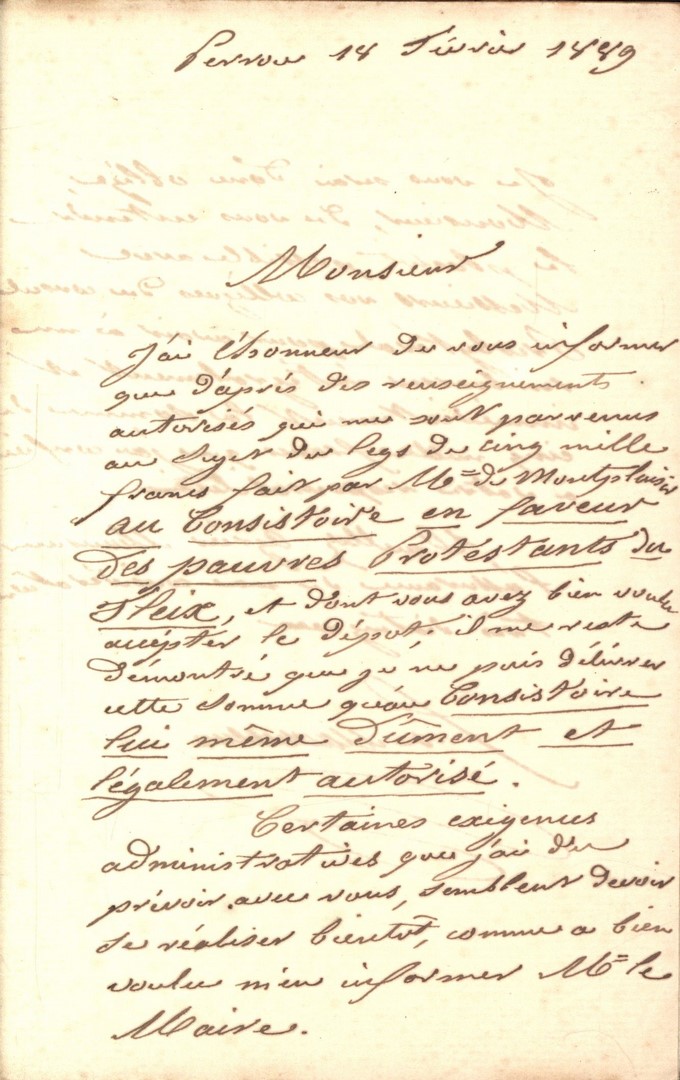 Perrou 18 Février 1889
Monsieur
J'ai l'honneur de vous informer
que d'aprés des renseignements
autorisés qui me sont parvenus
au sujet du legs de cinq mille
francs fait par Mr de Montplaisir
au Consistoire en faveur
des pauvres Protestants du
Fleix, et dont vous avez bien voulu
accépter le dépot, il me reste
démontré que je ne puis délivrer
cette somme qu'au Consistoire
lui même dûment et
légalement autorisé.
Certaines exigences
administratives que j'ai du
prévoir avec vous, semblent devoir
se réaliser bientôt, comme a bien
voulu m'en informer Mr le
Maire.